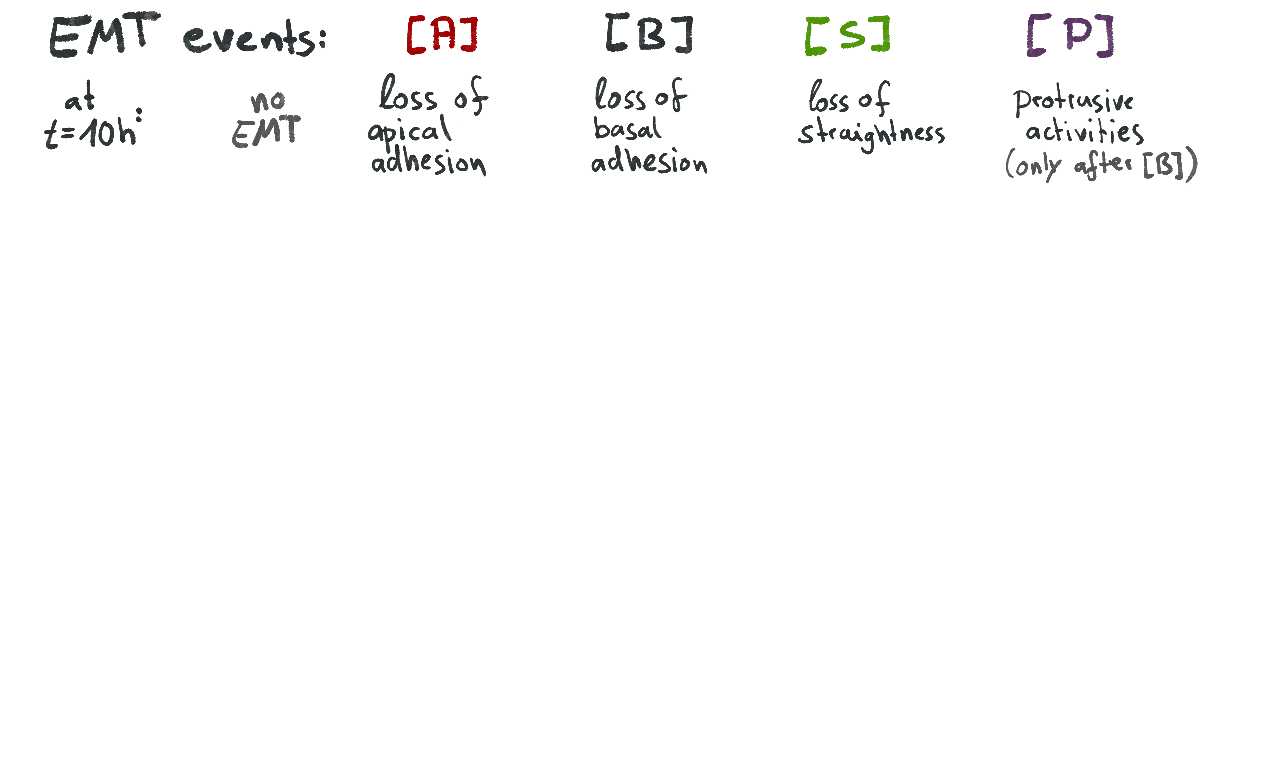 EMT events: [A] [B] [S] [P]
at
t=10h:
no
EMT
loss of
apical
adhesion
loss of
basal
adhesion
loss of
straightness
protrusive
activities
(only after [B])